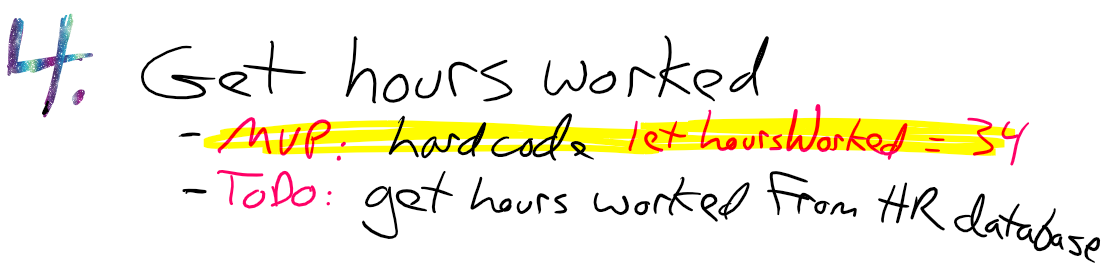 4. Get hours worked
- MVP: hardcode let hoursWorked = 34
- ToDo: get hours worked From HR database